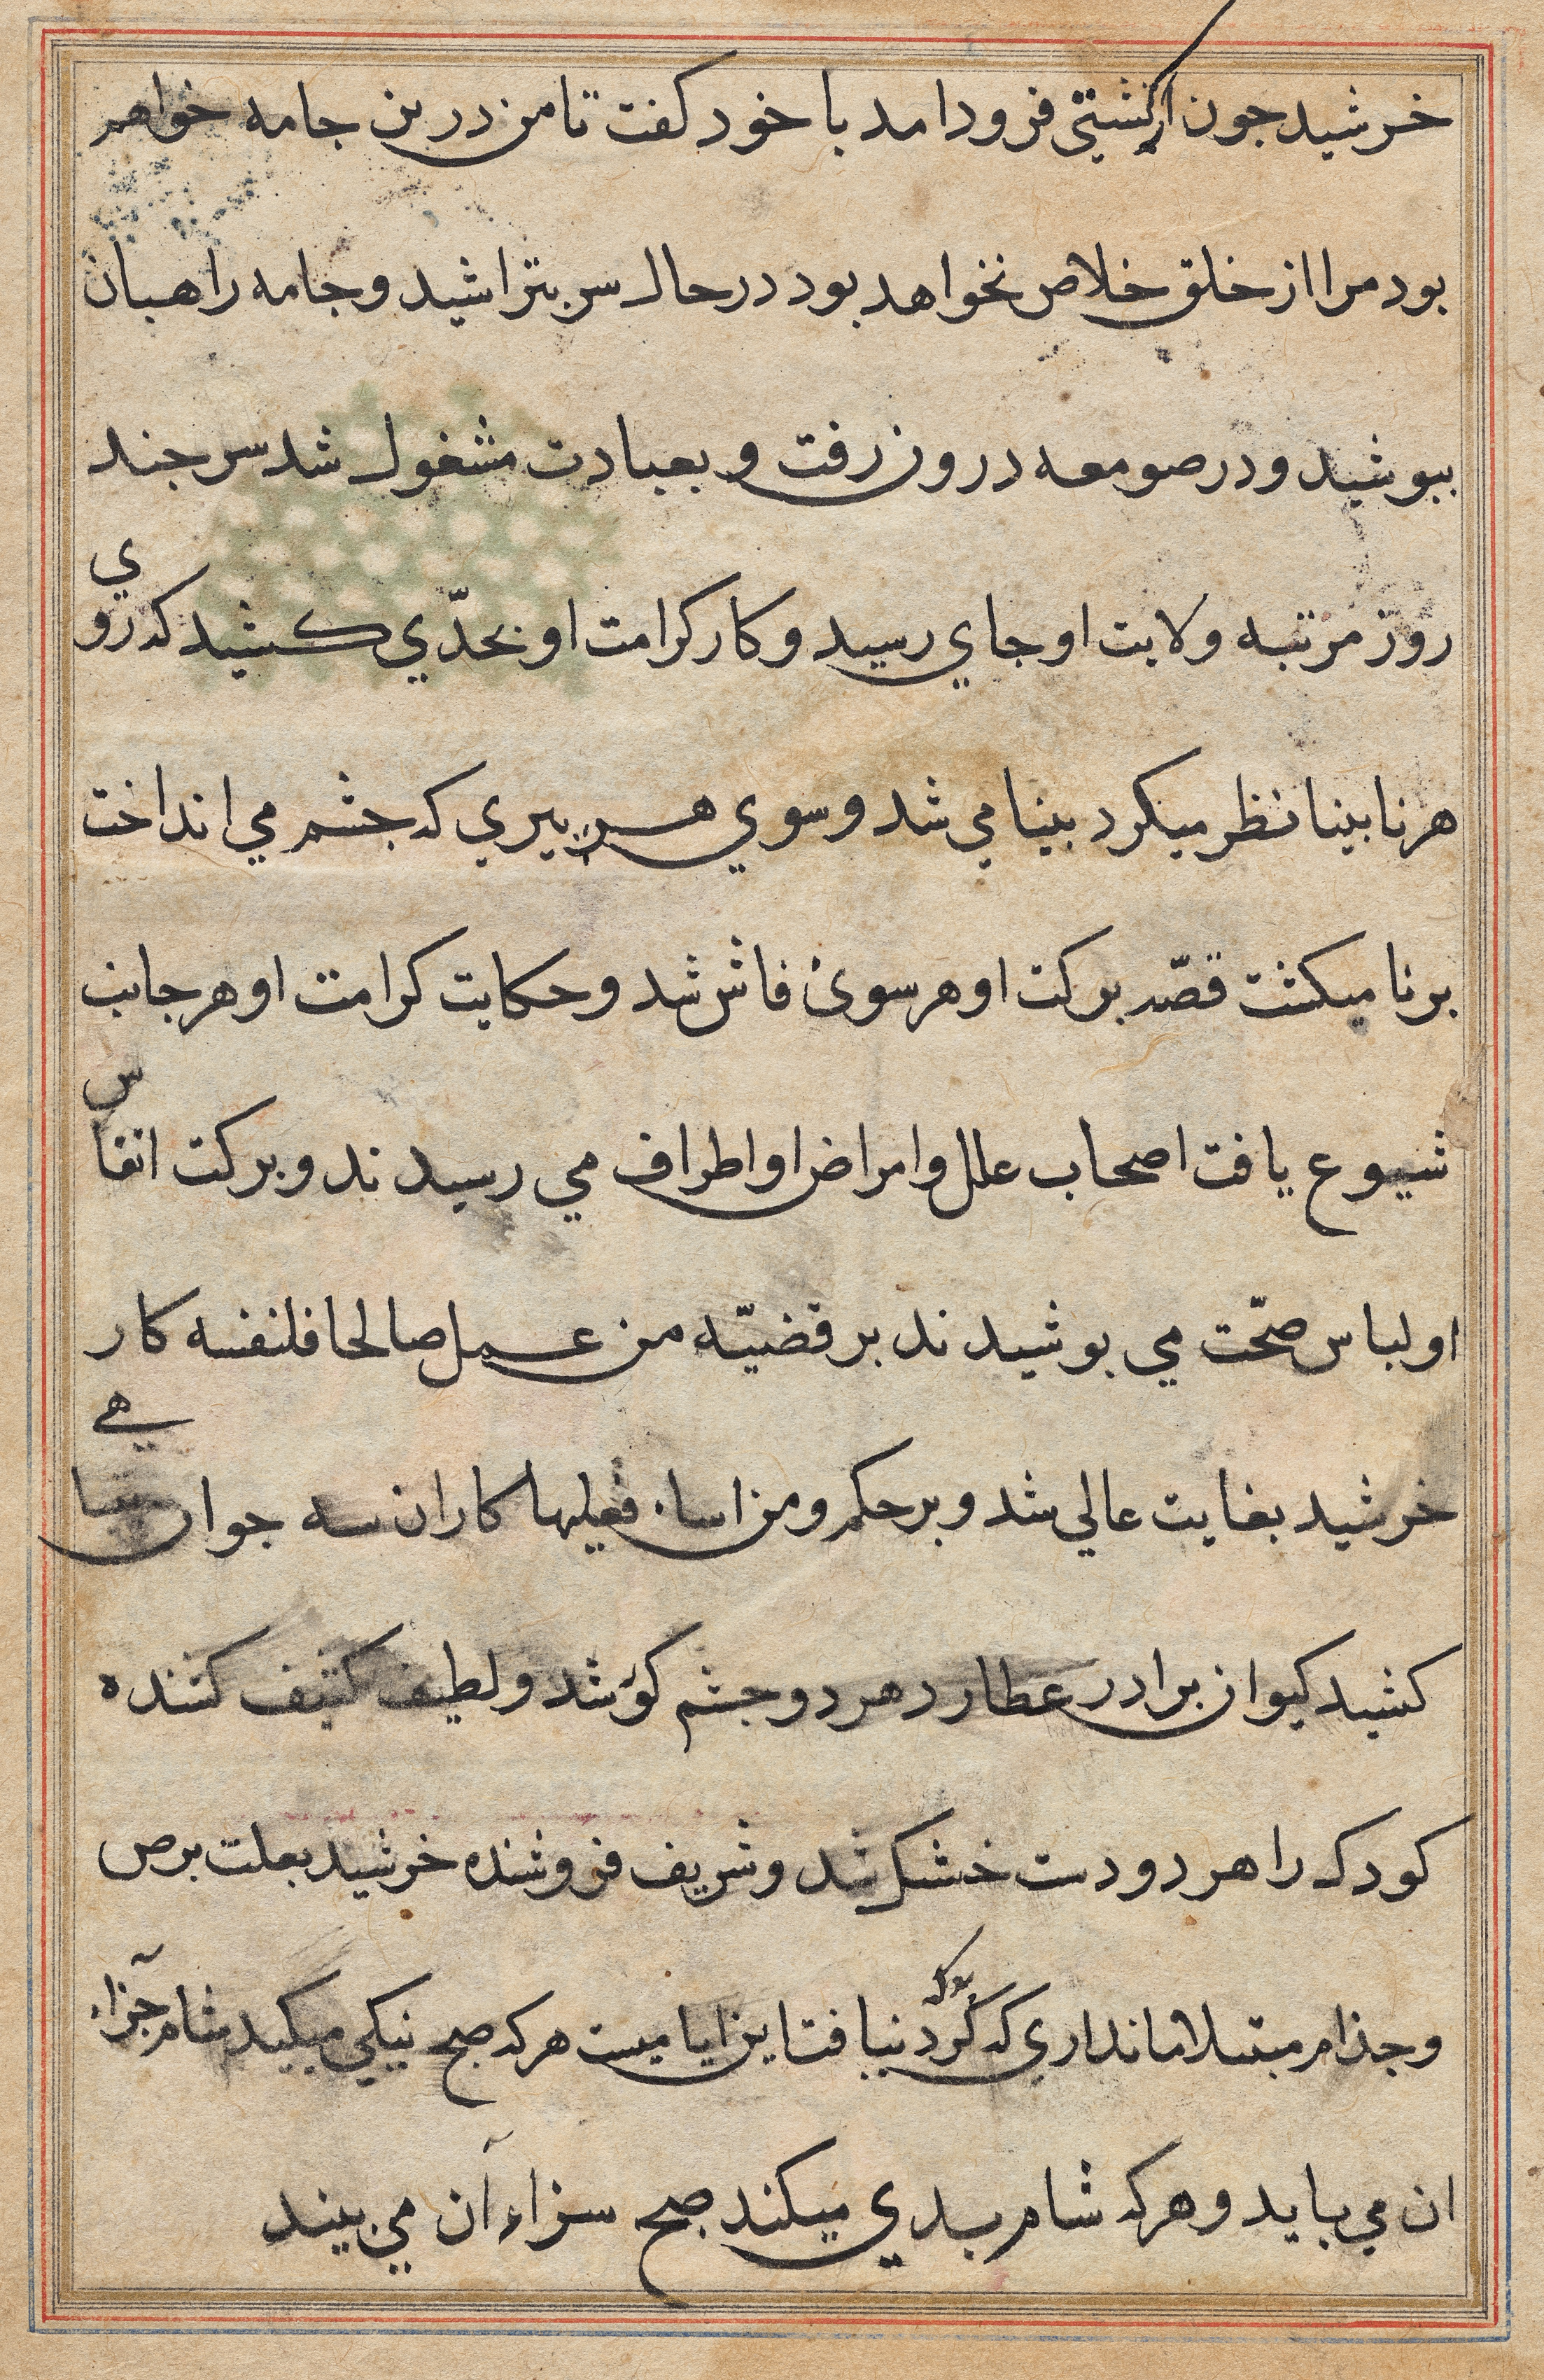 خرشید جون از کشتی فرود امد با خود کفت تا من درین جامه خواهم
بود مرا از خلق خلاص نخواهد بود در حال سر بتراشید و جامه راهبان
ببوشید و در صومعه درون رفت و بعبادت مشغول شد سر جند
روز مرتبه ولایت او جاي رسید و کار کرامت او بحدّي کشید که روي
هر نابینا نظر میکرد بینا می شد و سوي هر بیري که جشم می انداخت
برنا میکشت قصّه برکت او هر سوئ فاش شد و حکایت کرامت او هر جانب
شیوع یافت اصحاب علل و امراض او اطراف می رسیدند و برکت انفاس
او لباس صحّت می بوشیدند بر قضیّه من عمل صالحا فلنفسه کار
خرشید بغایت عالی شد و بر حکم و من اساء فعلیها کار ان سه جوان سیاهے
کشید کیوان برادر عطارد هر دو جشم کور شد و لطیف کثیف کننده
کودک را هر دو دست خشک شد و شریف فروشنده خرشید بعلت برص
و جذام مبتلا ماندار ي که کرد نیافت این ایامیست هر که صبح نیکی میکند شام جزاء
ان می یابد و هر که شام بدي میکند صبح سزاء آن می بیند